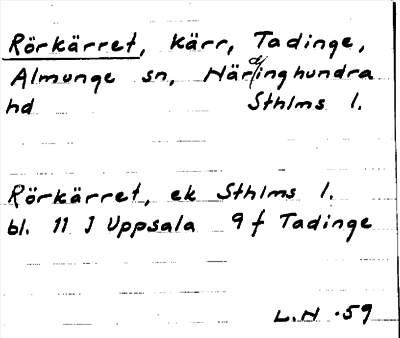 Rörkärret, kärr, Tadinge,
Almunge sn, Närdinghundra
hd Sthlms l.
Rörkärret, ek Sthlms l.
bl. 11 J Uppsala 9 f Tadinge
L.N. 59